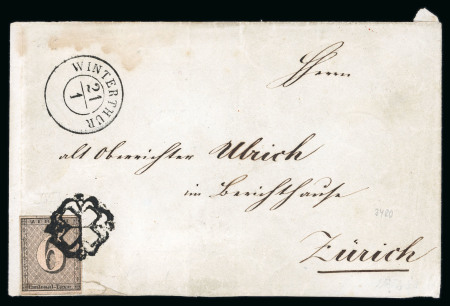 WINTERTHUR
21
1
Herrn
alt Oberrichter Ulrich
im Berichthause
Zürich
2400
ZÜRICH
6
Cantonal-Taxe